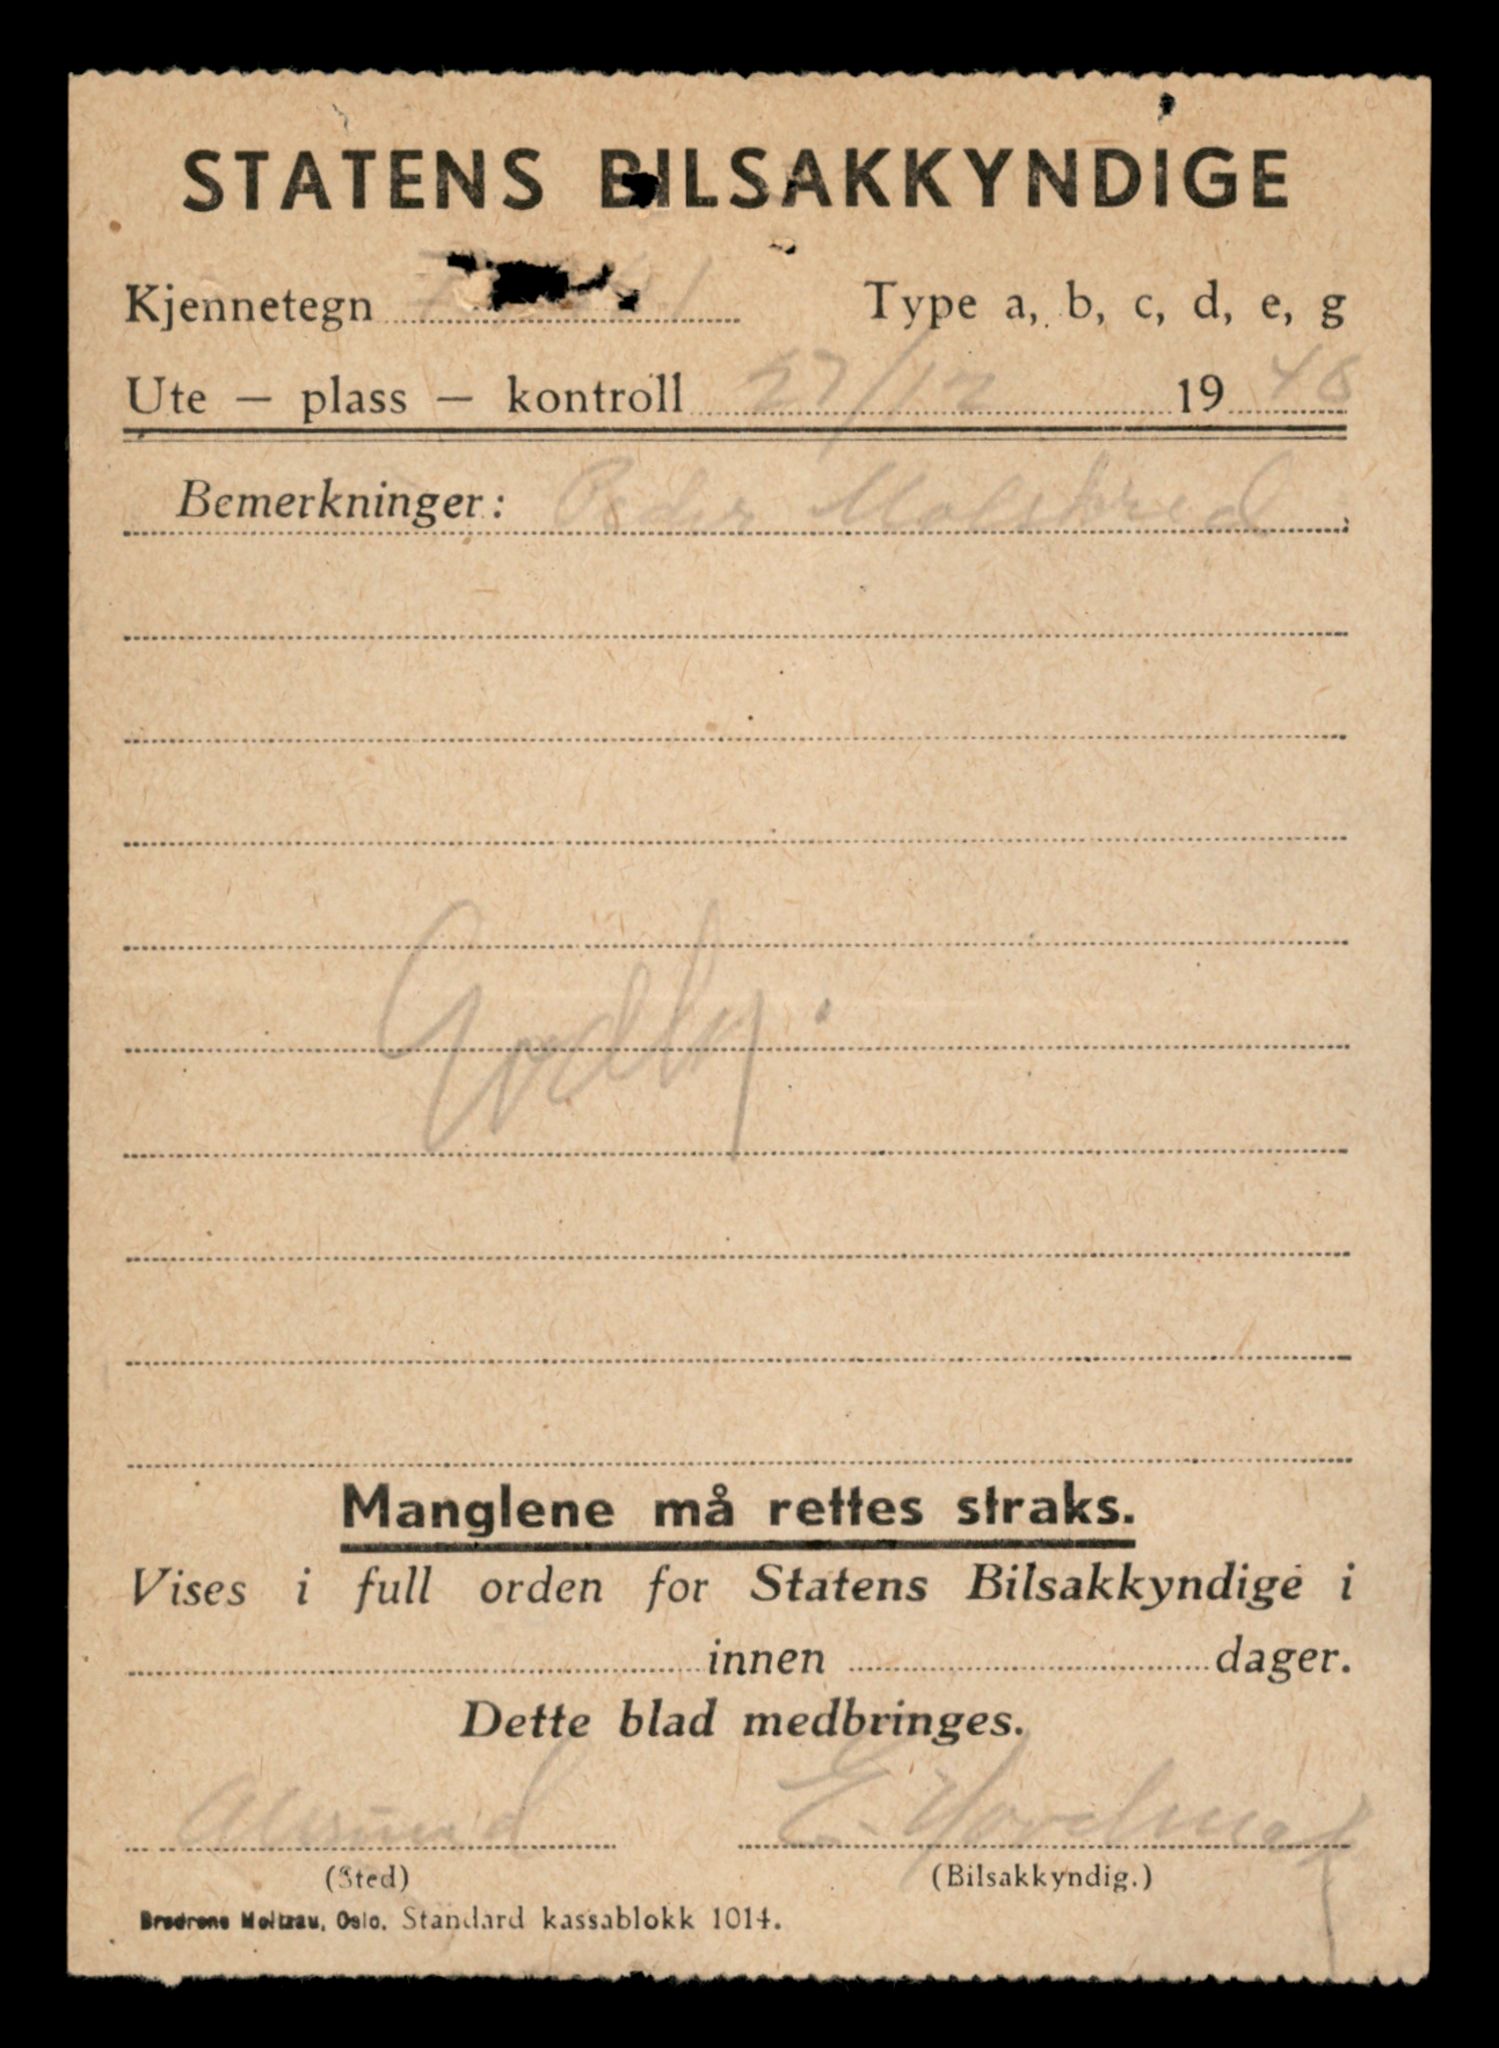 STATENS BILSAKKYNDIGE
Kjennetegn Type a, b, c, d, e, g
Ute — plass — kontroll 27/12 1948
Bemerkninger: Peder
Manglene må rettes straks.
Vises i full orden for Statens Bilsakkyndige i
innen dager.
Dette blad medbringes.
Ålesund
(Sted) (Bilsakkyndig.)
Brødrene Moltzau, Oslo. Standard kassablokk 1014.